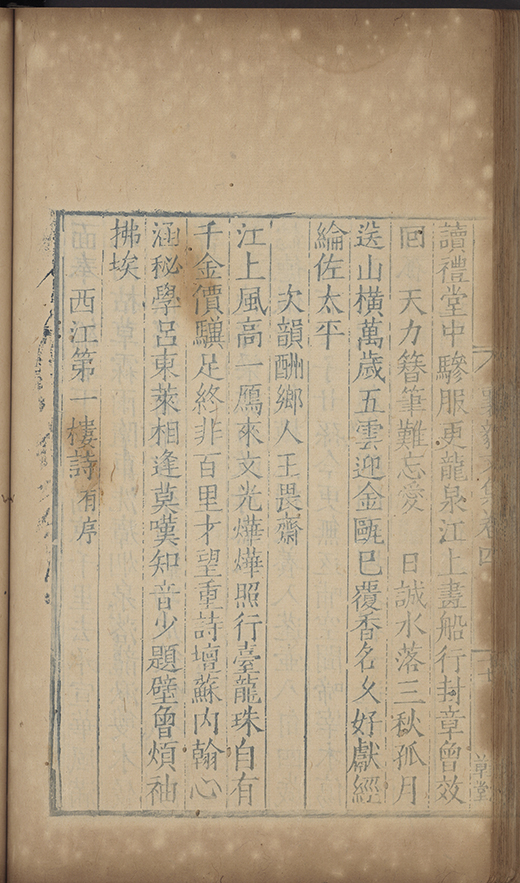 讀禮堂中驂服更龍泉江上畫船行封章曾效
回　天力簪筆難忘愛　日誠水落三秋孤月
送山橫萬歲五雲迎金甌已覆香名久好獻經
綸佐太平
次韻酬鄉人王畏齋
江上風高一鴈來文光燁燁照行臺龍珠自有
千金價驥足終非百里才望重詩壇蘇內翰心
涵秘學呂東萊相逢莫嘆知音少題壁曾煩袖
拂埃
西江第一樓詩有序
草堂